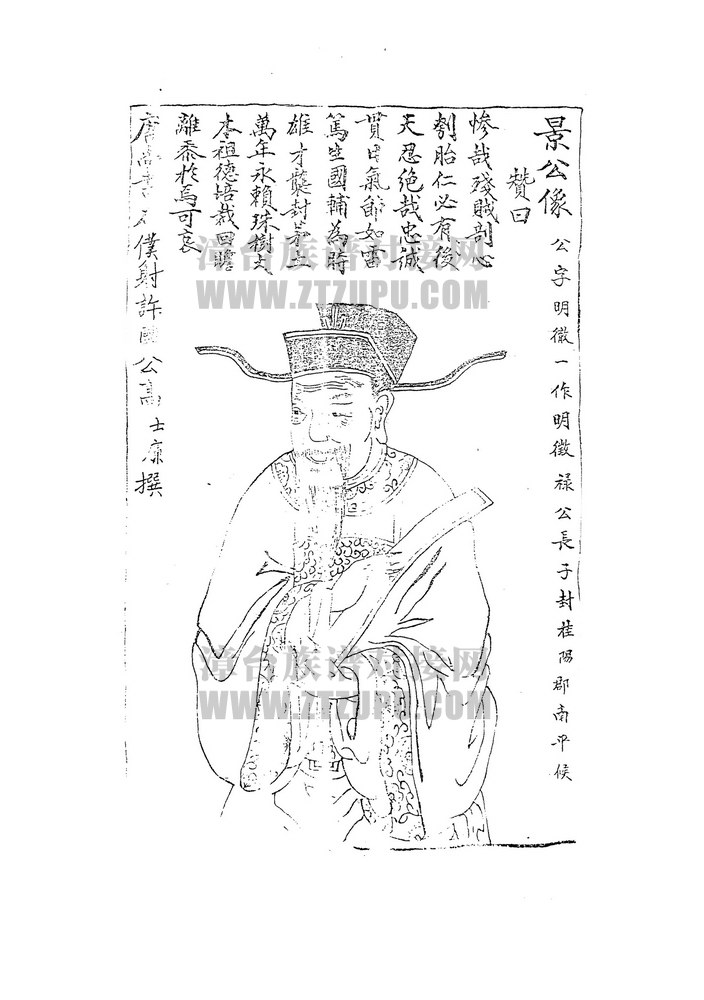 景公像
公字明徽一作明徵禄公長子封桂陽郡南平候
贊曰
慘哉殘賊剖心
刳胎仁必有後
天忍絶哉忠誠
貫日氣節如雷
篤生國輔為時
雄才襲封茅土
萬年永賴珠樹
本祖德培裁回瞻
離黍於焉可哀
唐尚書右僕射許國公高士廉撰
漳台族谱对接网
WWW.ZTZUPU.COM
漳台族谱对接网
WWW.ZTZUPU.COM